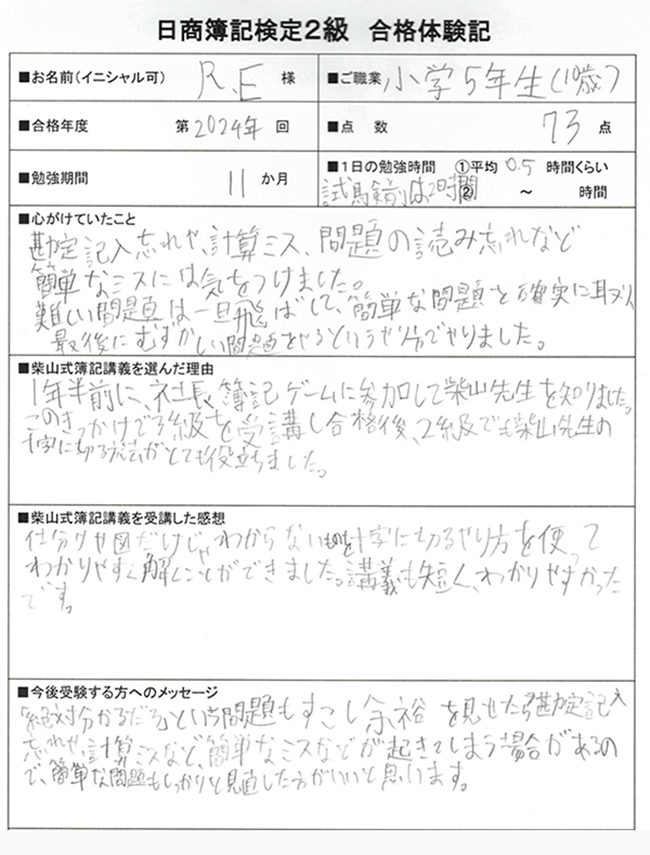 日商簿記検定2級 合格体験記
■お名前(イニシャル可) R.E 様 ■ご職業 小学5年生(10歳)
■合格年度 第2024年回 ■点 数 73点
■勉強期間 11か月 ■1日の勉強時間 ①平均 0.5 時間くらい
試験前は2時間 ② ～ 時間
■心がけていたこと
勘定記入忘れや、計算ミス、問題の読み忘れなど
簡単なミスには気をつけました。
難しい問題は一旦飛ばして、簡単な問題を確実に取り、
最後にむずかしい問題をやるというやり方でやりました。
■柴山式簿記講義を選んだ理由
1年半前に、社長簿記ゲームに参加して柴山先生を知りました。
このきっかけで3級を受講し合格後、2級でも柴山先生の
十字に切る方法がとても役立ちました。
■柴山式簿記講義を受講した感想
仕分けや図だけじゃわからないものを十字に切るやり方を使って
わかりやすく解くことができました。講義も短く、わかりやすかった
です。
■今後受験する方へのメッセージ
「絶対分かるだろ」という問題もすこし余裕を見せたら勘定記入
忘れや、計算ミスなど、簡単なミスなどが起きてしまう場合があるの
で、簡単な問題もしっかりと見直した方がいいと思います。